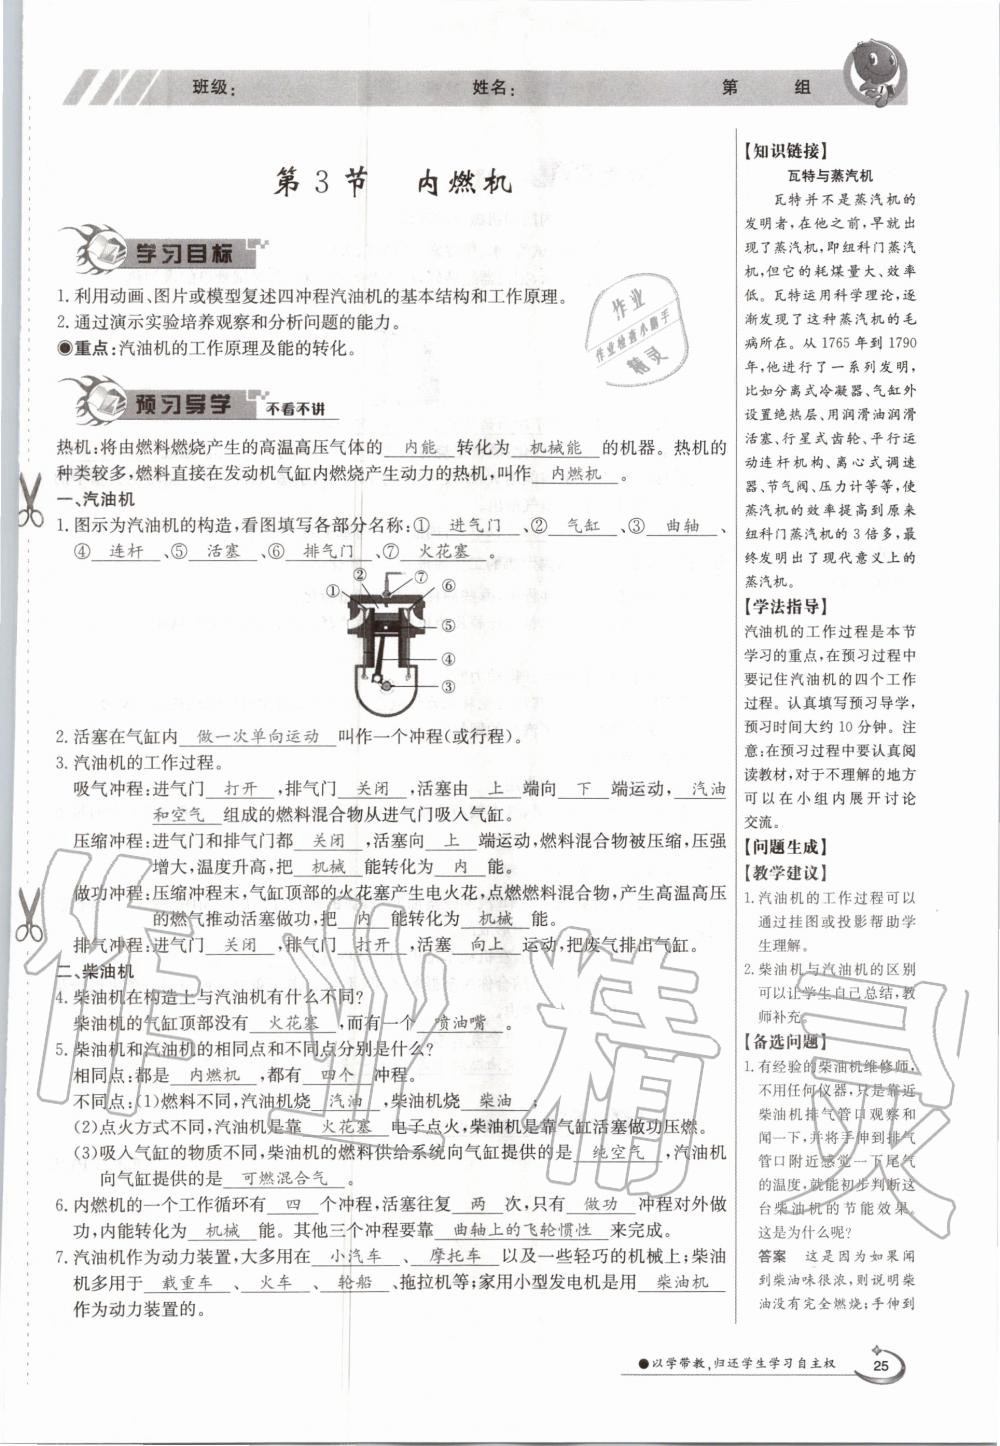 班级：　　　姓名：　　　第　　组
第3节　内燃机
学习目标
1. 利用动画、图片或模型复述四冲程汽油机的基本结构和工作原理。
2. 通过演示实验培养观察和分析问题的能力。
◉重点：汽油机的工作原理及能的转化。
预习导学　不看不讲
热机：将由燃料燃烧产生的高温高压气体的 内能 转化为 机械能 的机器。热机的
种类较多，燃料直接在发动机气缸内燃烧产生动力的热机，叫作 内燃机 。
一、汽油机
1. 图示为汽油机的构造，看图填写各部分名称：① 进气门 、② 气缸 、③ 曲轴 、
④ 连杆 、⑤ 活塞 、⑥ 排气门 、⑦ 火花塞 。
① ② ⑦ ⑥
⑤
④
③
2. 活塞在气缸内 做一次单向运动 叫作一个冲程（或行程）。
3. 汽油机的工作过程。
吸气冲程：进气门 打开 ，排气门 关闭 ，活塞由 上 端向 下 端运动， 汽油
和空气 组成的燃料混合物从进气门吸入气缸。
压缩冲程：进气门和排气门都 关闭 ，活塞向 上 端运动，燃料混合物被压缩，压强
增大，温度升高，把 机械 能转化为 内 能。
做功冲程：压缩冲程末，气缸顶部的火花塞产生电火花，点燃燃料混合物，产生高温高压
的燃气推动活塞做功，把 内 能转化为 机械 能。
排气冲程：进气门 关闭 ，排气门 打开 ，活塞 向上 运动，把废气排出气缸。
二、柴油机
4. 柴油机在构造上与汽油机有什么不同？
柴油机的气缸顶部没有 火花塞 ，而有一个 喷油嘴 。
5. 柴油机和汽油机的相同点和不同点分别是什么？
相同点：都是 内燃机 ，都有 四个 冲程。
不同点：(1)燃料不同，汽油机烧 汽油 ，柴油机烧 柴油 ；
(2)点火方式不同，汽油机是靠 火花塞 电子点火，柴油机是靠气缸活塞做功压燃。
(3)吸入气缸的物质不同，柴油机的燃料供给系统向气缸提供的是 纯空气 ，汽油机
向气缸提供的是 可燃混合气 。
6. 内燃机的一个工作循环有 四 个冲程，活塞往复 两 次，只有 做功 冲程对外做
功，内能转化为 机械 能。其他三个冲程要靠 曲轴上的飞轮惯性 来完成。
7. 汽油机作为动力装置，大多用在 小汽车 、 摩托车 以及一些轻巧的机械上；柴油
机多用于 载重车 、 火车 、 轮船 、拖拉机等；家用小型发电机是用 柴油机
作为动力装置的。
【知识链接】
瓦特与蒸汽机
瓦特并不是蒸汽机的
发明者，在他之前，早就出
现了蒸汽机，即纽科门蒸汽
机，但它的耗煤量大、效率
低。瓦特运用科学理论，逐
渐发现了这种蒸汽机的毛
病所在。从1765年到1790
年，他进行了一系列发明，
比如分离式冷凝器、气缸外
设置绝热层、用润滑油润滑
活塞、行星式齿轮、平行运
动连杆机构、离心式调速
器、节气阀、压力计等等，使
蒸汽机的效率提高到原来
纽科门蒸汽机的3倍多，最
终发明出了现代意义上的
蒸汽机。
【学法指导】
汽油机的工作过程是本节
学习的重点，在预习过程中
要记住汽油机的四个工作
过程。认真填写预习导学，
预习时间大约10分钟。注
意：在预习过程中要认真阅
读教材，对于不理解的地方
可以在小组内展开讨论
交流。
【问题生成】
【教学建议】
1. 汽油机的工作过程可以
通过挂图或投影帮助学
生理解。
2. 柴油机与汽油机的区别
可以让学生自己总结，教
师补充。
【备选问题】
1. 有经验的柴油机维修师，
不用任何仪器，只是靠近
柴油机排气管口观察和
闻一下，并将手伸到排气
管口附近感觉一下尾气
的温度，就能初步判断这
台柴油机的节能效果。
这是为什么呢？
答案　这是因为如果闻
到柴油味很浓，则说明柴
油没有完全燃烧；手伸到
●以学带教，归还学生学习自主权
25
作业
作业检查小助手
精灵
作业精灵